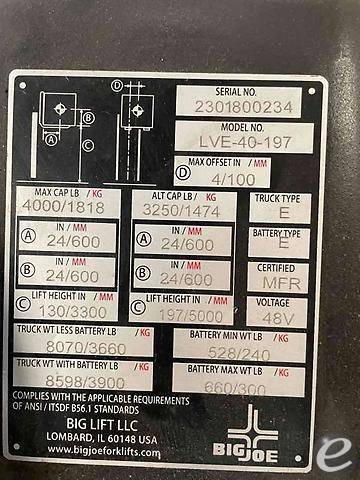 SERIAL NO.
2301800234
MODEL NO.
LVE-40-197
MAX OFFSET IN / MM
D 4/100
D
B
A
C
MAX CAP LB / KG
4000/1818
ALT CAP LB / KG
3250/1474
TRUCK TYPE
E
IN / MM
A 24/600
IN / MM
A 24/600
BATTERY TYPE
E
IN / MM
B 24/600
IN / MM
B 24/600
CERTIFIED
MFR
LIFT HEIGHT IN / MM
C 130/3300
LIFT HEIGHT IN / MM
C 197/5000
VOLTAGE
48V
TRUCK WT LESS BATTERY LB / KG
8070/3660
BATTERY MIN WT LB / KG
528/240
TRUCK WT WITH BATTERY LB / KG
8598/3900
BATTERY MAX WT LB / KG
660/300
COMPLIES WITH THE APPLICABLE REQUIREMENTS
OF ANSI / ITSDF B56.1 STANDARDS
BIG LIFT LLC
LOMBARD, IL 60148 USA
www.bigjoeforklifts.com
BIGJOE
e